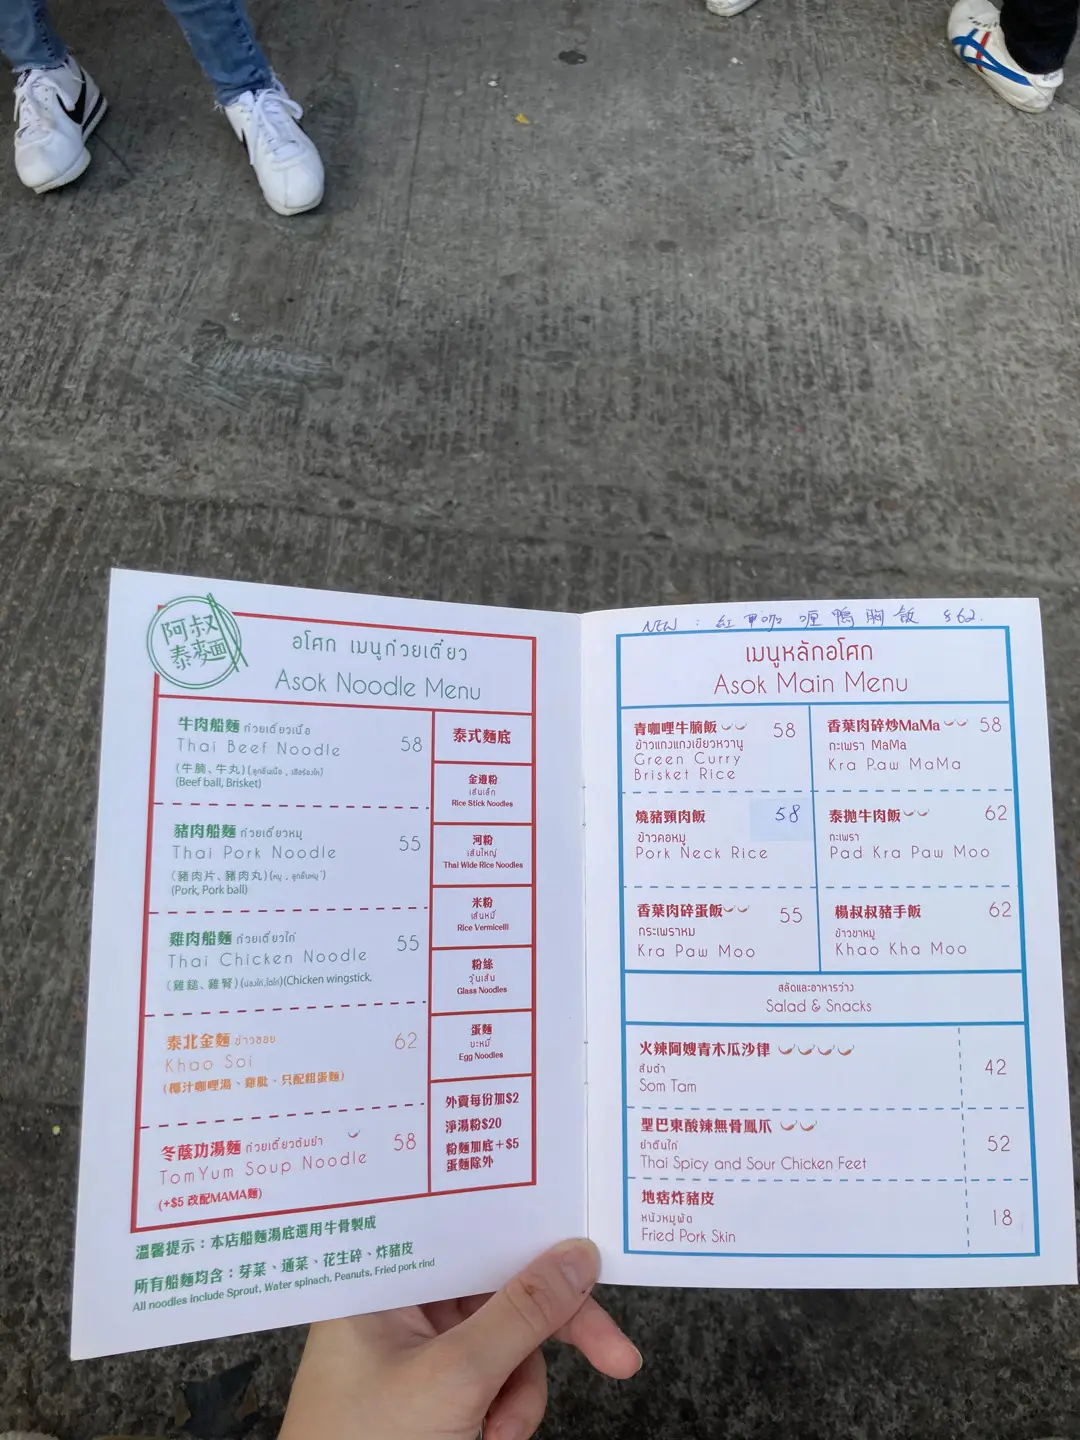 阿叔
泰麵
อโศก เมนูก๋วยเตี๋ยว
Asok Noodle Menu
牛肉船麵 ก๋วยเตี๋ยวเนื้อ 58
Thai Beef Noodle
(牛腩、牛丸)
(Beef ball, Brisket)
豬肉船麵 ก๋วยเตี๋ยวหมู 55
Thai Pork Noodle
(豬肉片、豬肉丸)(หมู , ลูกชิ้นหมู)
(Pork, Pork ball)
雞肉船麵 ก๋วยเตี๋ยวไก่ 55
Thai Chicken Noodle
(雞鎚、雞腎)(น่องไก่,ไตไก่)(Chicken wingstick,
泰北金麵 ข้าวซอย 62
Khao Soi
(椰汁咖喱湯、雞髀、只配粗蛋麵)
冬蔭功湯麵 ก๋วยเตี๋ยวต้มยำ 58
TomYum Soup Noodle
(+$5 改配MAMA麵)
泰式麵底
金邊粉
เส้นเล็ก
Rice Stick Noodles
河粉
เส้นใหญ่
Thai Wide Rice Noodles
米粉
เส้นหมี่
Rice Vermicelli
粉絲
วุ้นเส้น
Glass Noodles
蛋麵
บะหมี่
Egg Noodles
外賣每份加$2
淨湯粉$20
粉麵加底+$5
蛋麵除外
溫馨提示：本店船麵湯底選用牛骨製成
所有船麵均含：芽菜、通菜、花生碎、炸豬皮
All noodles include Sprout, Water spinach, Peanuts, Fried pork rind
NEW : 紅咖喱鴨胸飯 $62.
เมนูหลักอโศก
Asok Main Menu
青咖喱牛腩飯 58
ข้าวแกงแกงเขียวหวานู
Green Curry
Brisket Rice
香葉肉碎炒MaMa 58
กะเพรา MaMa
Kra Paw MaMa
燒豬頸肉飯 58
ข้าวคอหมู
Pork Neck Rice
泰拋牛肉飯 62
กะเพรา
Pad Kra Paw Moo
香葉肉碎蛋飯 55
กระเพราหม
Kra Paw Moo
楊叔叔豬手飯 62
ข้าวขาหมู
Khao Kha Moo
สลัดและอาหารว่าง
Salad & Snacks
火辣阿嫂青木瓜沙律 42
ส้มตำ
Som Tam
聖巴東酸辣無骨鳳爪 52
ยำตีนไก่
Thai Spicy and Sour Chicken Feet
地痞炸豬皮 18
หนังหมูผัด
Fried Pork Skin